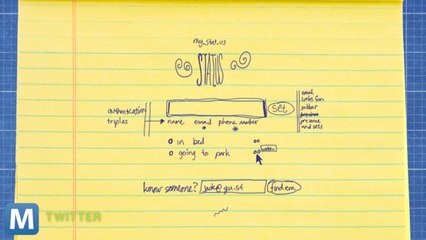 my.stat.us
STATUS
authentication
triples
set
name email phone number
email
looks for
jabber
presence
and sets
in bed
going to park
know someone?
jack@gu.st
find em
M TWITTER